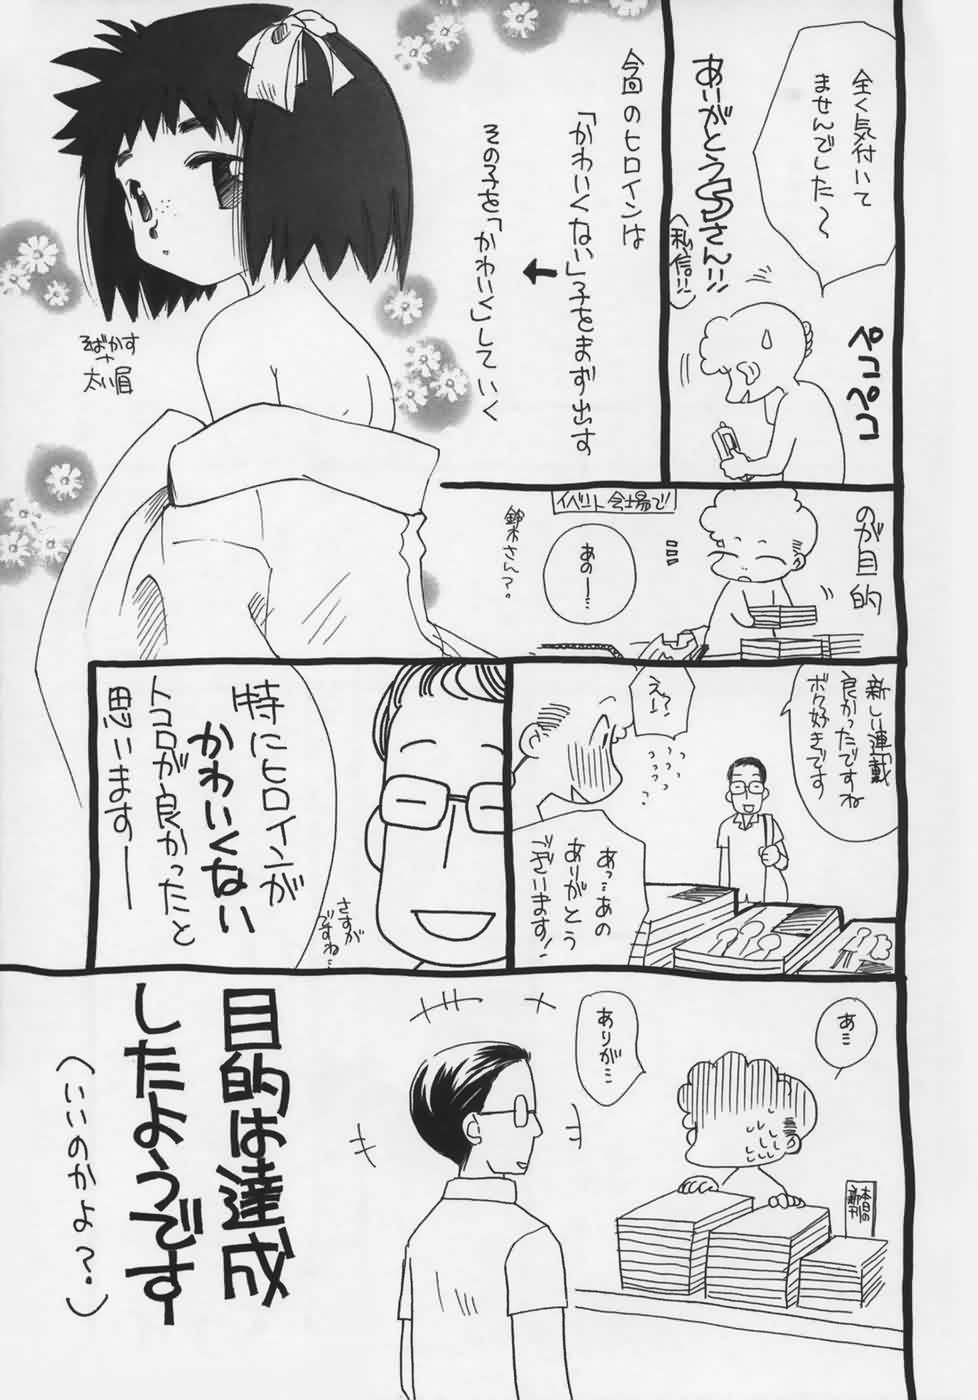 全く気付いて
ませんでした～
ペコペコ
ありがとうSさん!!
(私信!!)
今回のヒロインは
「かわいくない」子をまず出す
←
その子を「かわいく」していく
そばかす
+
太い眉
のが目的
イベント会場で
あのー…
鈴木さん?。
新しい連載
良かったですね
ボク好きです
えーっ?
あっ…あの
ありがとう
ございます!
特にヒロインが
かわいくない
トコロが良かったと
思いますー
さすが
ですね…
あ…
ありが…
本日の
新刊
目的は達成
したようです
(いいのかよ?。)